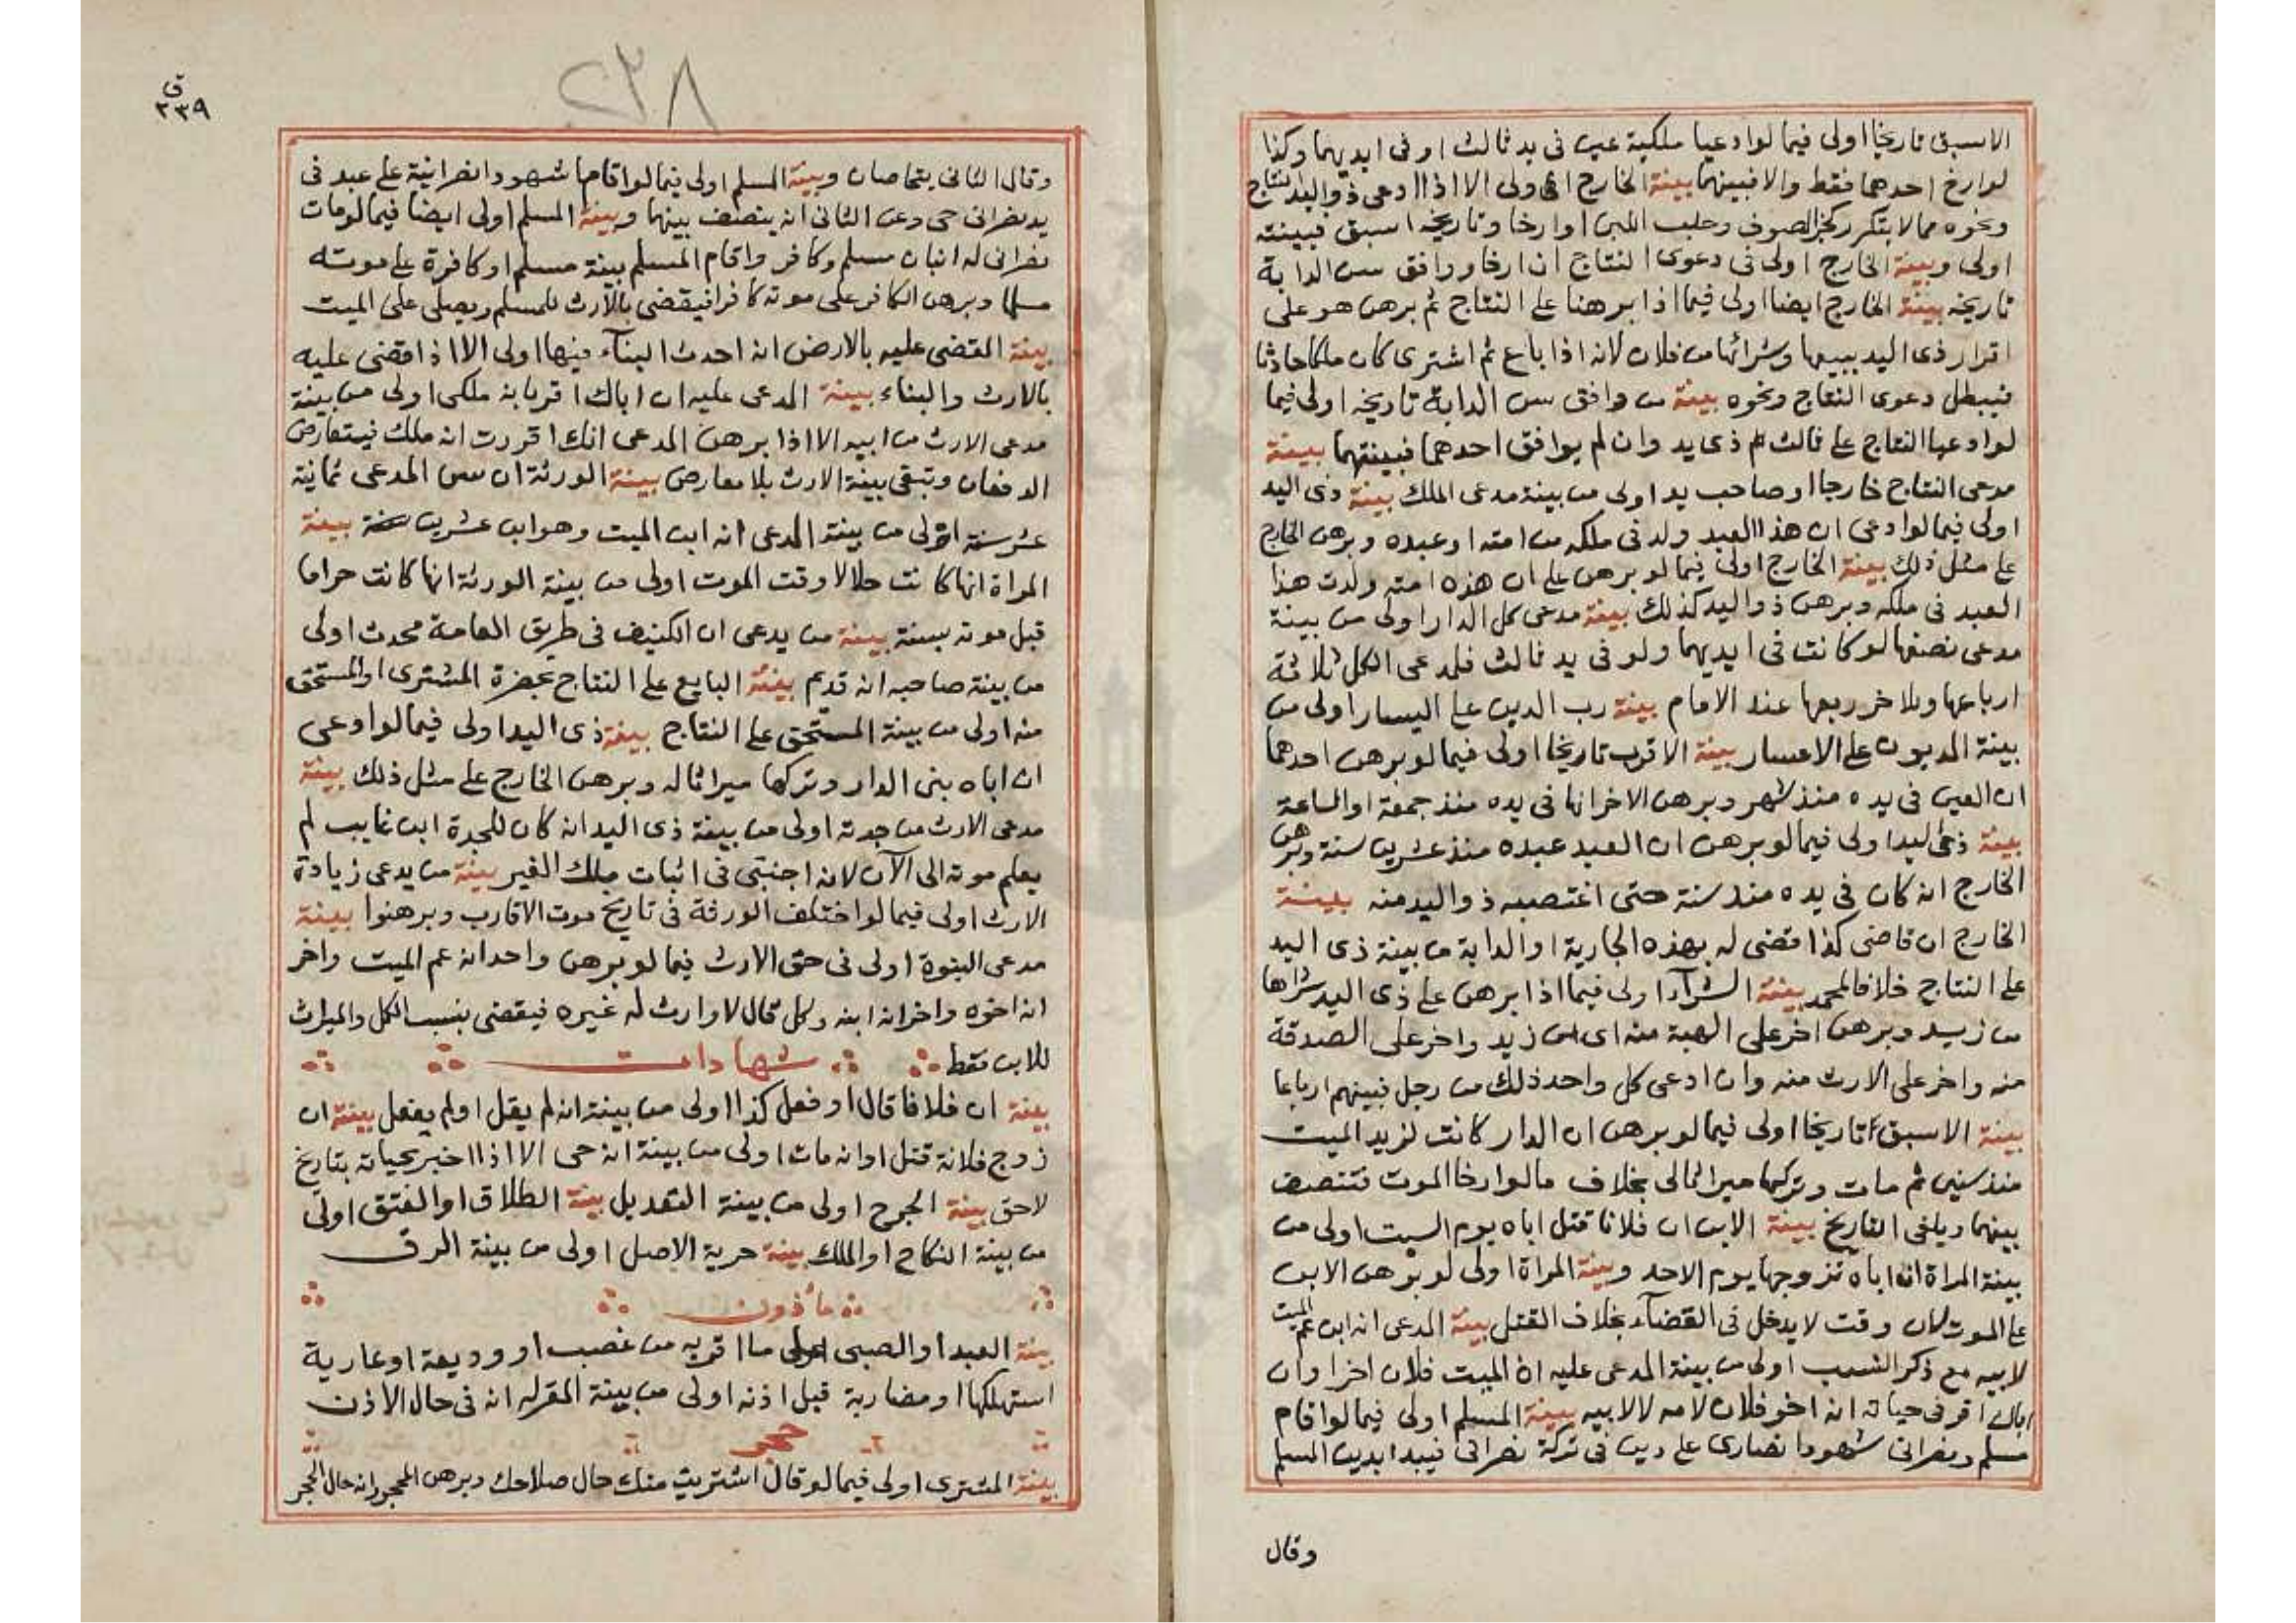 الاسبق تاريخا اولى فيما لو ادعيا ملكية عين فى يد ثالث او فى ايديهما وكذا
لو ارخ احدهما فقط والا فبينهما بينة الخارج اولى الا اذا ادعى ذو اليد نتاج
ونحوه مما لا يتكرر كجز الصوف وحلب اللبن او ارخا وتاريخه اسبق فبينته
اولى وبينة الخارج اولى فى دعوى النتاج ان ارخا ووافق سن الدابة
تاريخه بينة الخارج ايضا اولى فيما اذا برهنا على النتاج ثم برهن هو على
اقرار ذى اليد ببيعها وشرائها من فلان لانه اذا باع ثم اشترى كان ملكا حادثا
فيبطل دعوى النتاج ونحوه بينة من وافق سن الدابة تاريخه اولى فيما
لو ادعيا النتاج على ثالث ذى يد وان لم يوافق احدهما فبينتهما بينة
مدعى النتاج خارجا او صاحب يد اولى من بينة مدعى الملك بينة ذى اليد
اولى فيما لو ادعى ان هذا العبد ولد فى ملكه من امته او عبده وبرهن الخارج
على مثل ذلك بينة الخارج اولى فيما لو برهن على ان هذه امته ولدت هذا
العبد فى ملكه وبرهن ذو اليد كذلك بينة مدعى كل الدار اولى من بينة
مدعى نصفها لو كانت فى ايديهما ولو فى يد ثالث فلمدعى الكل ثلاثة
ارباعها وللاخر ربعها عند الامام بينة رب الدين على اليسار اولى من
بينة المديون على الاعسار بينة الاقرب تاريخا اولى فيما لو برهن احدهما
ان العين فى يده منذ شهر وبرهن الاخر انها فى يده منذ جمعة او الساعة
بينة ذى اليد اولى فيما لو برهن ان العبد عبده منذ عشرين سنة وبرهن
الخارج انه كان فى يده منذ سنة حتى اغتصبه ذو اليد منه بينة
الخارج ان قاضى كذا قضى له بهذه الجارية او الدابة من بينة ذى اليد
على النتاج خلافا لمحمد بينة الشراء اولى فيما اذا برهن على ذى اليد شراها
من زيد وبرهن اخر على الهبة منه اى من زيد واخر على الصدقة
منه واخر على الارث منه وان ادعى كل واحد ذلك من رجل فبينهم ارباعا
بينة الاسبق تاريخا اولى فيما لو برهن ان الدار كانت لزيد الميت
منذ سنين ثم مات وتركها ميراثا لى بخلاف ما لو ارخا الموت فتنتصف
بينهما ويلغى التاريخ بينة الابن ان فلانا قتل اباه يوم السبت اولى من
بينة المراة ان اباه تزوجها يوم الاحد وبينة المراة اولى لو برهن الابن
على الموت لان وقت لا يدخل فى القضاء بخلاف القتل بينة المدعى انه ابن عم الميت
لابيه مع ذكر النسب اولى من بينة المدعى عليه ان الميت فلان اخر او ان
اباك اقر فى حياته انه اخو فلان لامه لا لابيه بينة المسلم اولى فيما لو اقام
مسلم ونصرانى شهودا نصارى على دين فى تركة نصرانى فيبدا بدين المسلم
وقال
٢٣٨
ق
٢٣٩
وقال الثانى يتحاصان وبينة المسلم اولى فيما لو اقاما شهودا نصرانية على عبد فى
يد نصرانى حى وعن الثانى انه ينصف بينهما وبينة المسلم اولى ايضا فيما لو مات
نصرانى له ابنان مسلم وكافر واقام المسلم بينة مسلم او كافرة على موته
مسلما وبرهن الكافر على موته كافرا فيقضى بالارث للمسلم ويصلى على الميت
بينة المقضى عليه بالارض انه احدث البناء فيها اولى الا اذا قضى عليه
بالارث والبناء بينة المدعى عليه ان اباك اقر بانه ملكى اولى من بينة
مدعى الارث من ابيه الا اذا برهن المدعى انك اقررت انه ملك فيتعارض
الدفعان وتبقى بينة الارث بلا معارض بينة الورثة ان سن المدعى ثمانية
عشر سنة اولى من بينة المدعى انه ابن الميت وهو ابن عشرين سنة بينة
المراة انها كانت حلالا وقت الموت اولى من بينة الورثة انها كانت حراما
قبل موته بسنة بينة من يدعى ان الكنيف فى طريق العامة محدث اولى
من بينة صاحبه انه قديم بينة البايع على النتاج بحضرة المشترى او المستحق
منه اولى من بينة المستحق على النتاج بينة ذى اليد اولى فيما لو ادعى
ان اباه بنى الدار وتركها ميراثا له وبرهن الخارج على مثل ذلك بينة
مدعى الارث من جدته اولى من بينة ذى اليد انه كان للجدة ابن غايب لم
يعلم موته الى الآن لانه اجنبى فى اثبات ملك الغير بينة من يدعى زيادة
الارث اولى فيما لو اختلف الورثة فى تاريخ موت الاقارب وبرهنوا بينة
مدعى البنوة اولى فى حق الارث فيما لو برهن واحد انه عم الميت واخر
انه اخوه واخر انه ابنه وكل قال لا وارث له غيره فيقضى بنسب الكل والميراث
للابن فقط شهادات
بينة ان فلانا قال او فعل كذا اولى من بينة انه لم يقل او لم يفعل بينة ان
زوج فلانة قتل او انه مات اولى من بينة انه حى الا اذا اخبر بحياته بتاريخ
لاحق بينة الجرح اولى من بينة التعديل بينة الطلاق او العتق اولى
من بينة النكاح او الملك بينة حرية الاصل اولى من بينة الرق
مأذون
بينة العبد او الصبى على ما اقر به من غصب او وديعة او عارية
استهلكها او مضاربة قبل اذنه اولى من بينة المقر له انه فى حال الاذن
حجر
بينة المشترى اولى فيما لو قال اشتريت منك حال صلاحك وبرهن المحجور انه حال الحجر